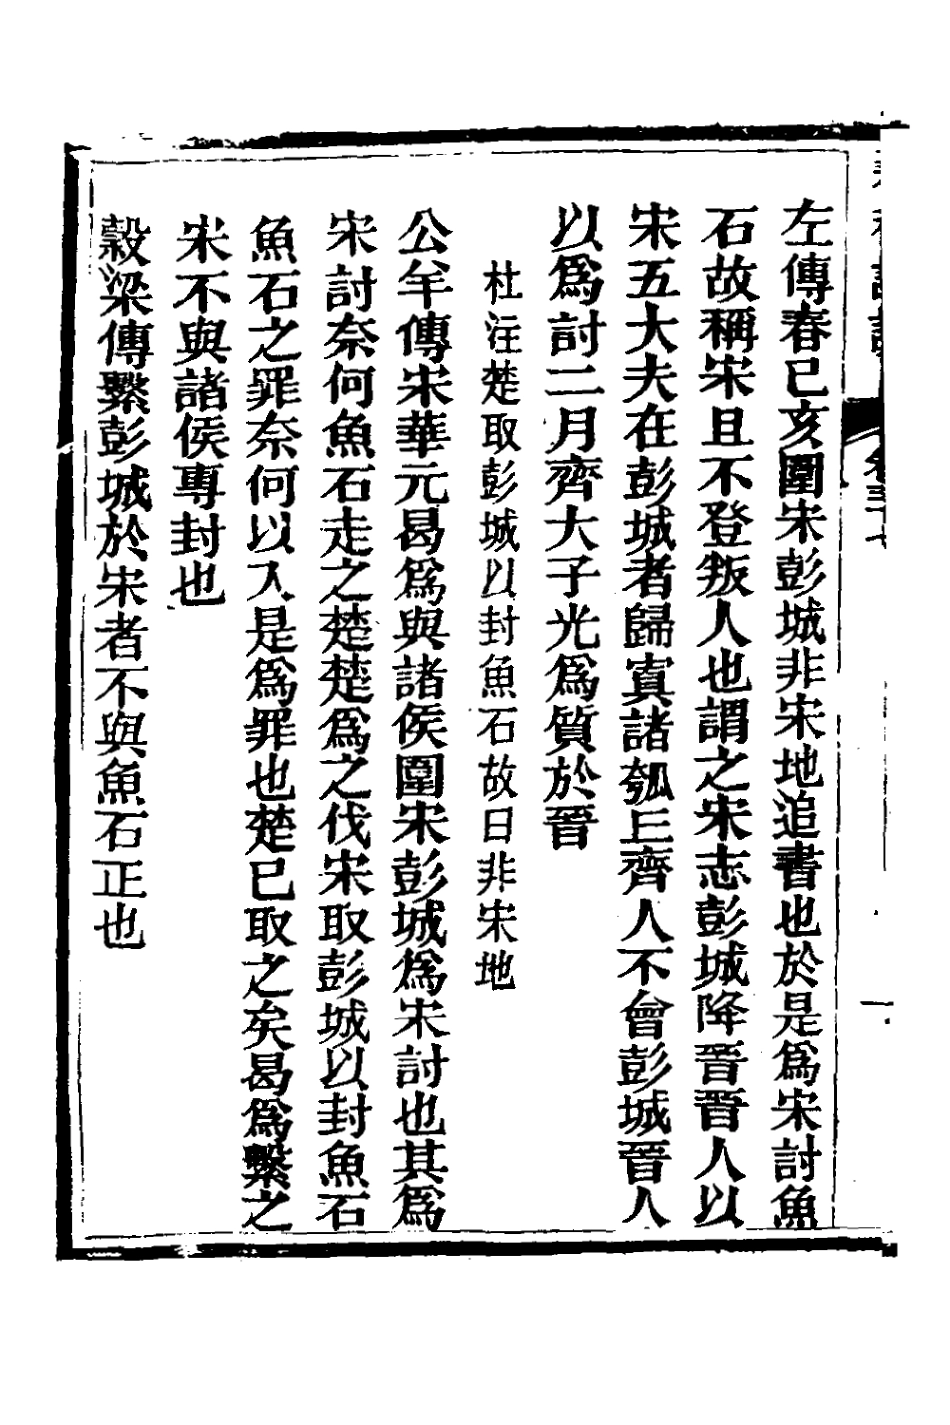 左傳春己亥圍宋彭城非宋地追書也於是爲宋討魚
石故稱宋且不登叛人也謂之宋志彭城降晉晉人以
宋五大夫在彭城者歸寘諸瓠丘齊人不會彭城晉人
以爲討二月齊大子光爲質於晉
杜注楚取彭城以封魚石故曰非宋地
公羊傳宋華元曷爲與諸侯圍宋彭城爲宋討也其爲
宋討奈何魚石走之楚楚爲之伐宋取彭城以封魚石
魚石之罪奈何以入是爲罪也楚已取之矣曷爲繫之
宋不與諸侯專封也
穀梁傳繫彭城於宋者不與魚石正也